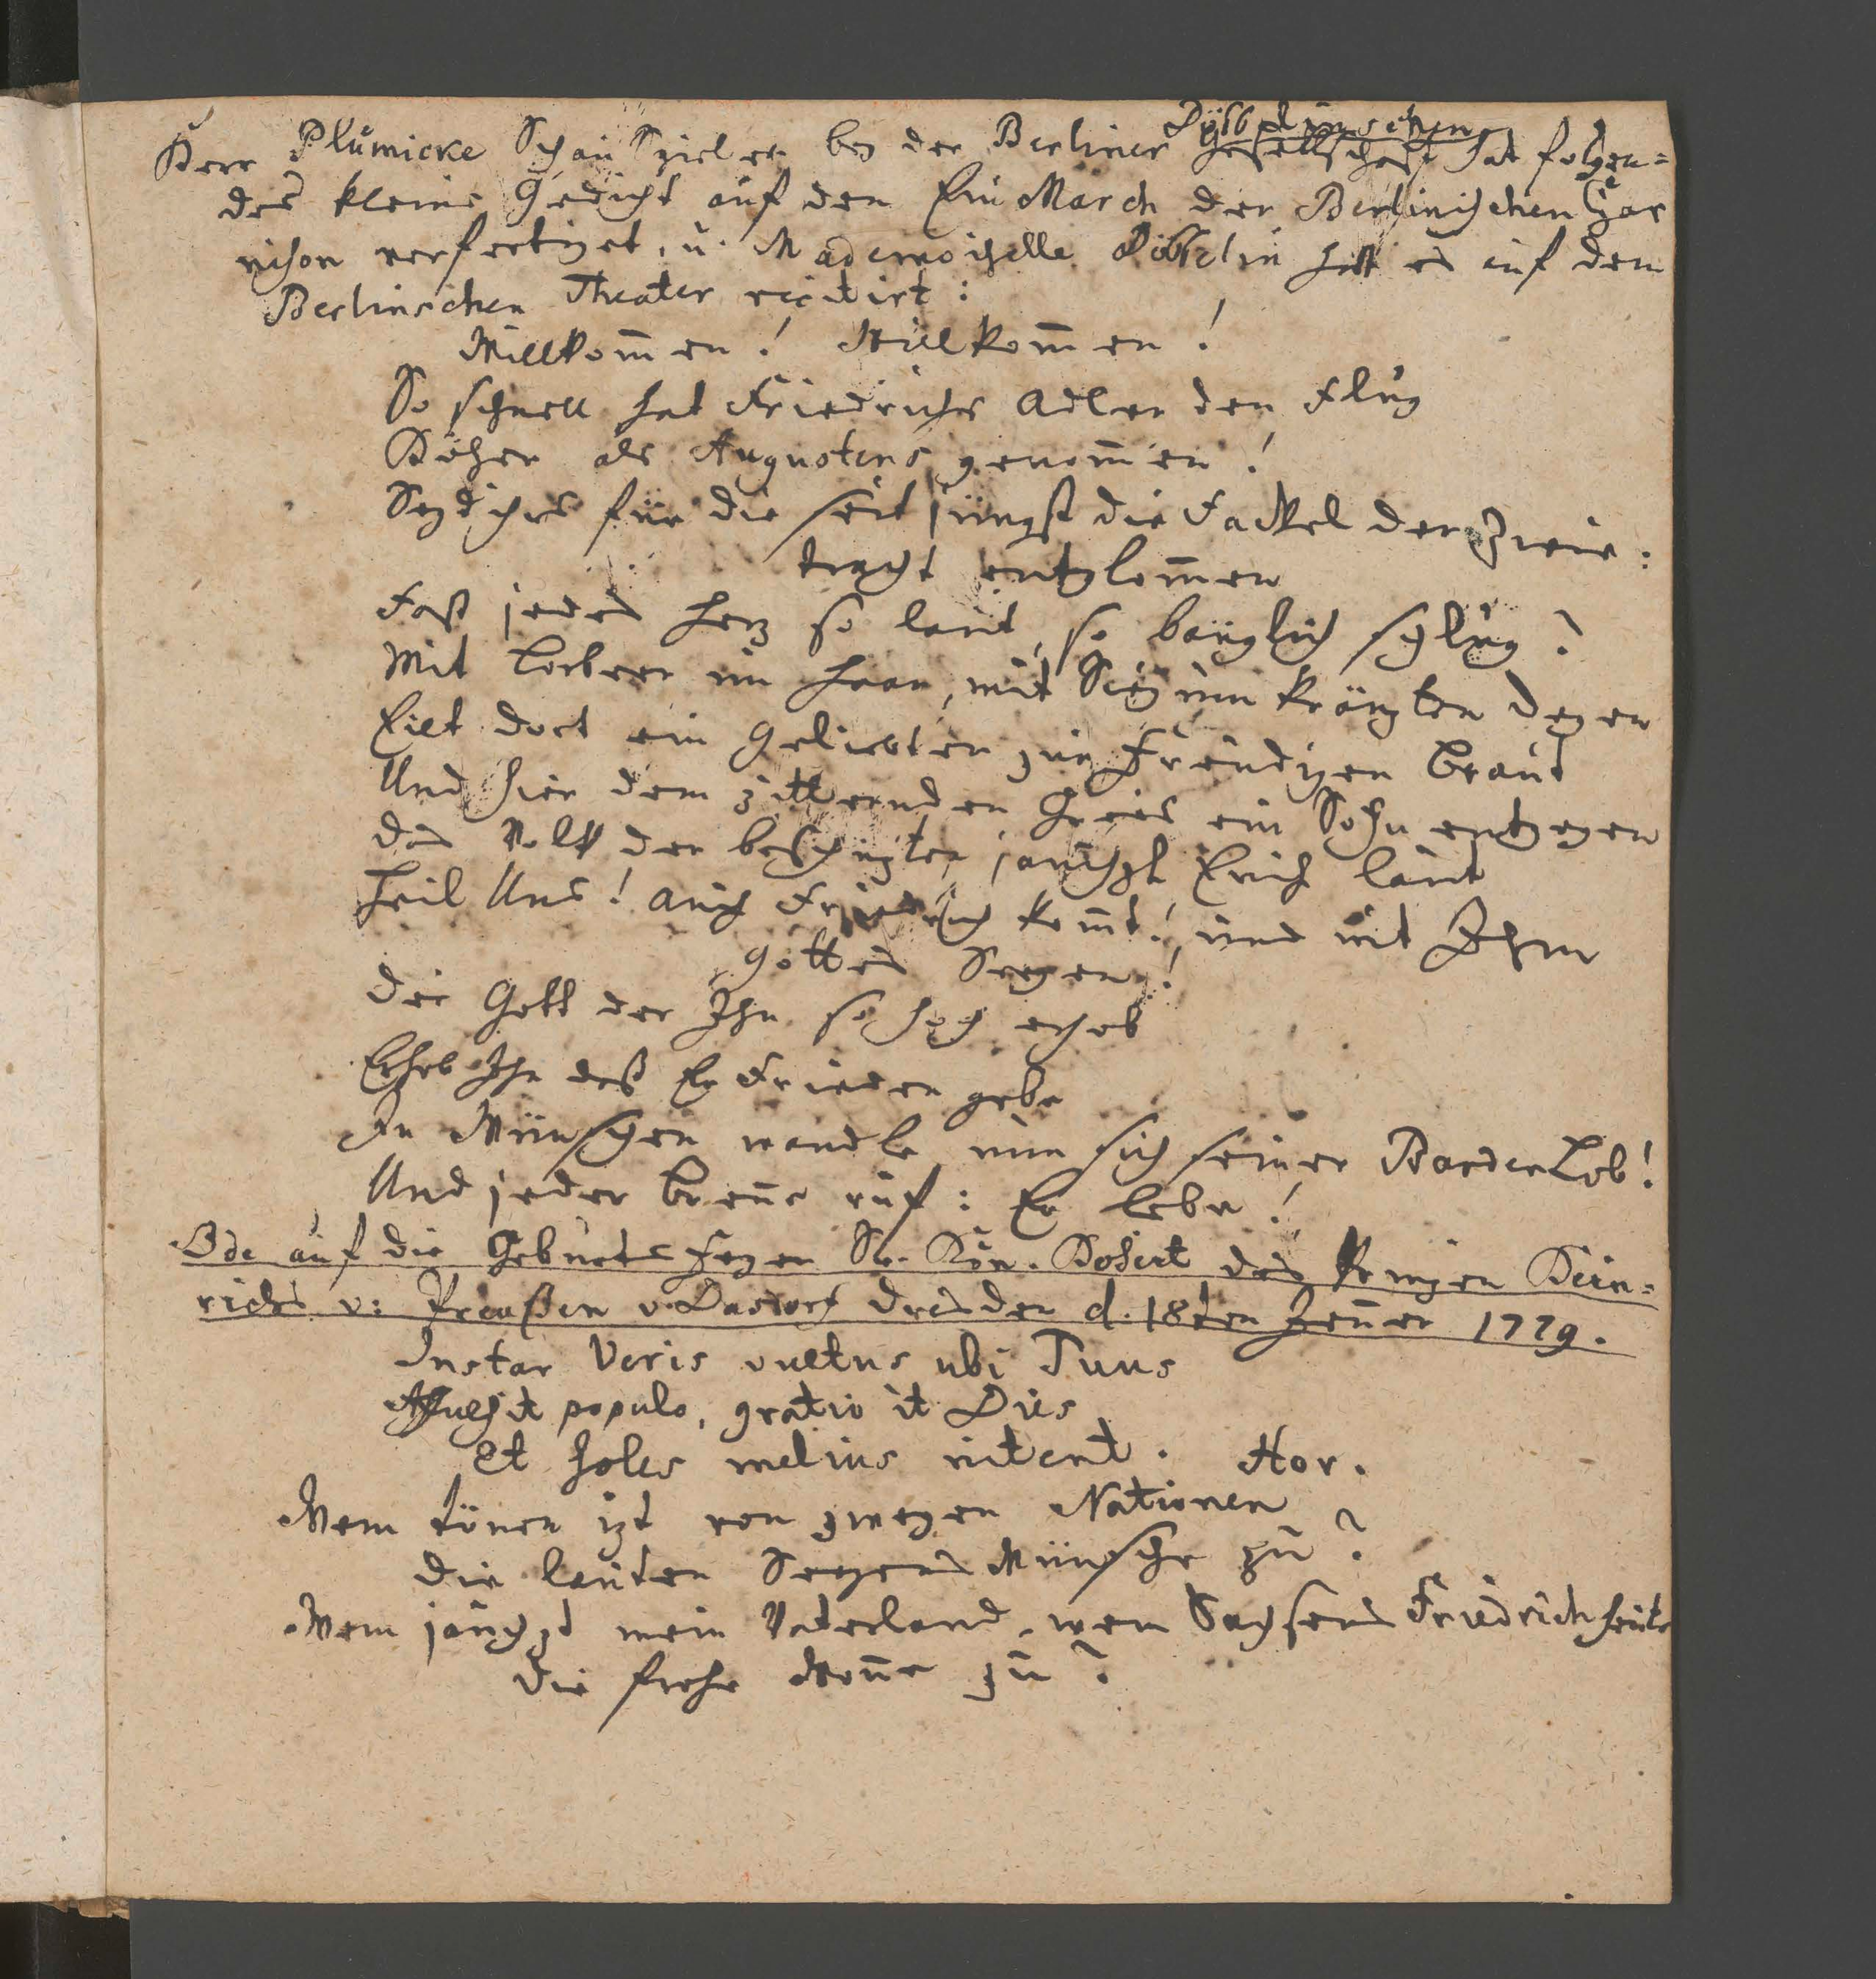 Döbbelinschen
Herr Plümicke Schau Spieler bey der Berliner Gesellschaft hat folgen=
des kleine Gedicht auf den Ein March der Berlinischen Gar
nison verfertiget, u. Mademoiselle Döbbelin hatt es auf dem
Berlinschen Theater recitirt:
Willkom̄en! Willkom̄en!
So schnell hat Friedrichs Adler den Flug
Höher als Augustens genom̄en!
Seyd ihrs für die seit jüngst die Fackel der Zwie:
tracht entglom̄en
Fast jedes Herz so laut, so bänglich schlug?
Mit Lorbeer im Haar, mit Sieg um kränzten Degen
Eilt dort ein Geliebter zur Freudigen Braut
Und hier dem zitternden Greis ein Sohn entgegen
Das Volk der beschüzten jauchzt Euch laut
Heil Uns! auch Friedrich kom̄t! und mit Ihm
Gottes Seegen!
Der Gott der Ihn so hoch erhob
Erheb Ihn daß Er Frieden gebe
In Wünschen wandle nun sich seiner Barder Lob!
Und jeder Bren̄e ruf: Er lebe!
Ode auf die Geburts Feyer Sr. Kön. Hoheit des Prinzen Hein=
richs v: Preußen v. Dasdorf Dresden d. 18ten Jen̄er 1779.
Instar Veris vultus ubi Tuus
Affulsit populo, gratio it Dies
Et soles melius nitent. Hor.
Wem tönen izt von zweyen Nationen
Die lauten Seegens Wünsche zu?
Wem jauchzt mein Vaterland, wem Sachsens Friedrich heute
Die frohe Won̄e zu?